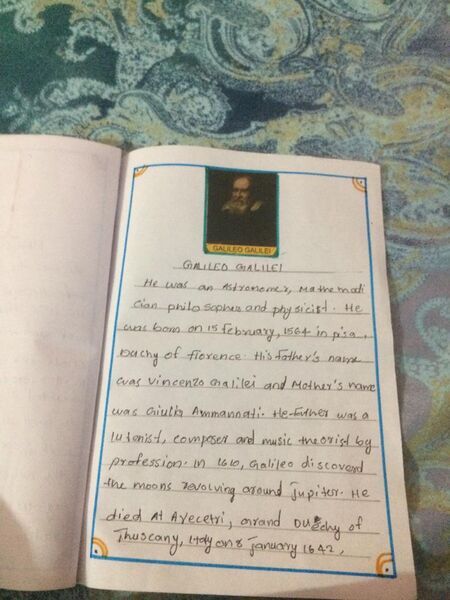 GALILEO GALILEI
GALILEO GALILEI
He was an Astronomer, Mathemati
cian philosopher and physicist. He
was born on 15 february, 1564 in pisa,
Duchy of florence. His father's name
was Vincenzo Galilei and Mother's name
was Giulia Ammannati. He father was a
lutenist, composer and music theorist by
profession. In 1610, Galileo discoverd
the moons revolving around Jupiter. He
died At Arecetri, Grand Duchy of
Thuscany, Italy on 8 January 1642,